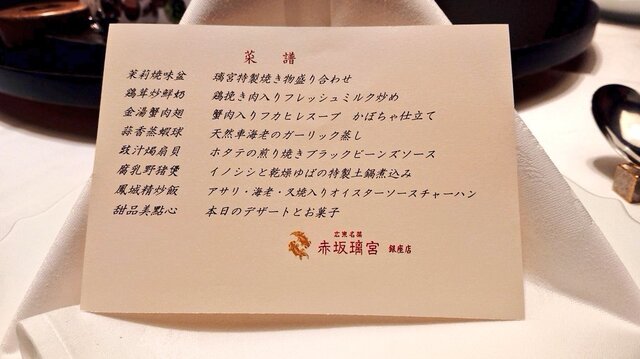 菜譜
茉莉燒味盆 璃宮特製焼き物盛り合わせ
鶏茸炒鮮奶 鶏挽き肉入りフレッシュミルク炒め
金湯蟹肉翅 蟹肉入りフカヒレスープ かぼちゃ仕立て
蒜香蒸蝦球 天然車海老のガーリック蒸し
豉汁焗扇貝 ホタテの煎り焼きブラックビーンズソース
腐乳野猪煲 イノシシと乾燥ゆばの特製土鍋煮込み
鳳城精炒飯 アサリ・海老・叉焼入りオイスターソースチャーハン
甜品美點心 本日のデザートとお菓子
広東名菜
赤坂璃宮 銀座店